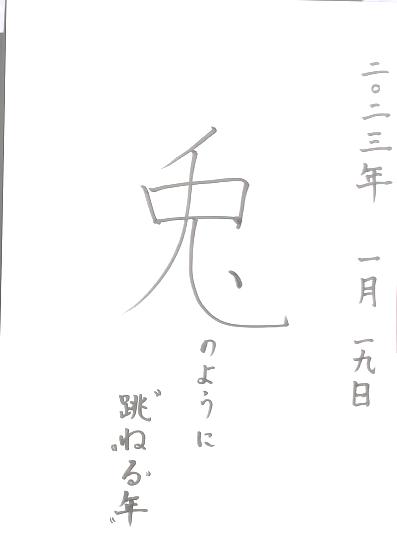 二〇二三年 一月 一九日
兎
のように
〝跳ねる年〟